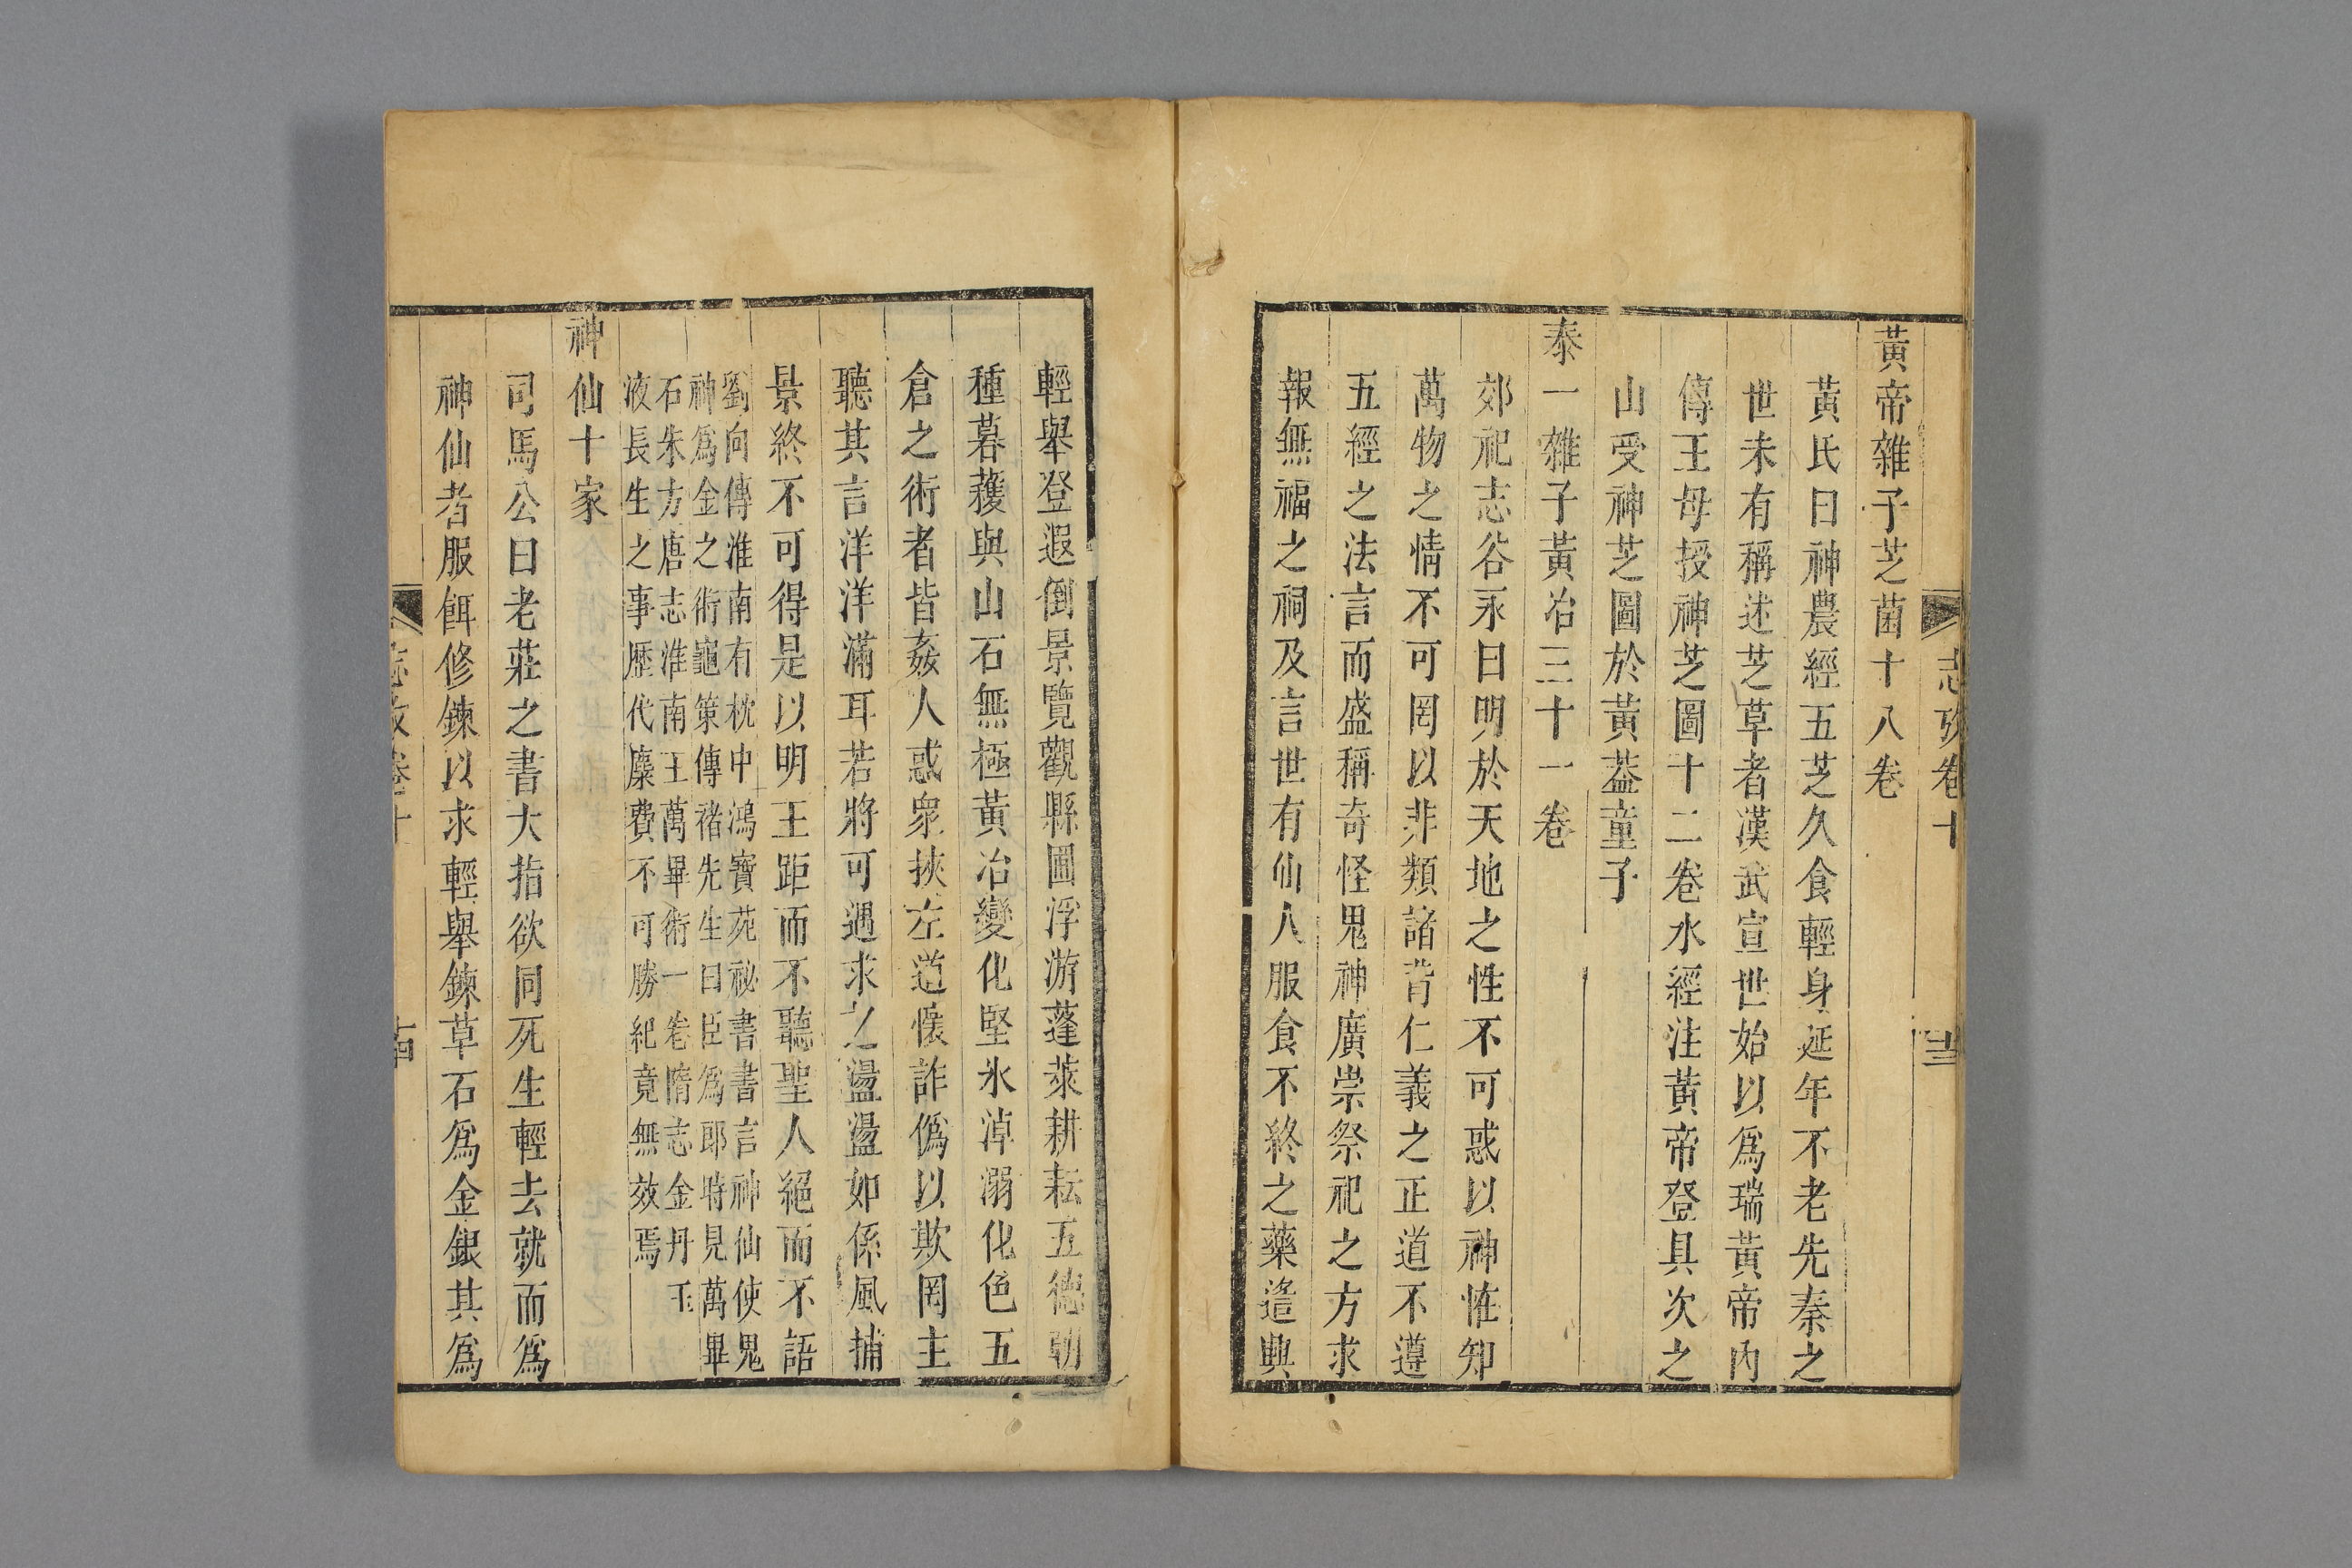 志攷卷十
黃帝雜子芝菌十八卷
黃氏曰神農經五芝久食輕身延年不老先秦之
世未有稱述芝草者漢武宣世始以爲瑞黃帝內
傳王母授神芝圖十二卷水經注黃帝登具次之
山受神芝圖於黃葢童子
泰一雜子黃冶三十一卷
郊祀志谷永曰明於天地之性不可惑以神怪知
萬物之情不可罔以非類諸背仁義之正道不遵
五經之法言而盛稱奇怪鬼神廣崇祭祀之方求
報無福之祠及言世有仙人服食不終之藥遙興
輕舉登遐倒景覽觀縣圃浮游蓬萊耕耘五德朝
種暮穫與山石無極黃冶變化堅氷淖溺化色五
倉之術者皆姦人惑衆挾左道懷詐僞以欺罔主
聽其言洋洋滿耳若將可遇求之盪盪如係風捕
景終不可得是以明王距而不聽聖人絕而不語
劉向傳淮南有枕中鴻寶苑祕書書言神仙使鬼
神爲金之術龜策傳褚先生曰臣爲郎時見萬畢
石朱方唐志淮南王萬畢術一卷隋志金丹玉
液長生之事歷代糜費不可勝紀竟無效焉
神仙十家
司馬公曰老莊之書大指欲同死生輕去就而爲
神仙者服餌修鍊以求輕舉鍊草石爲金銀其爲
志攷卷十